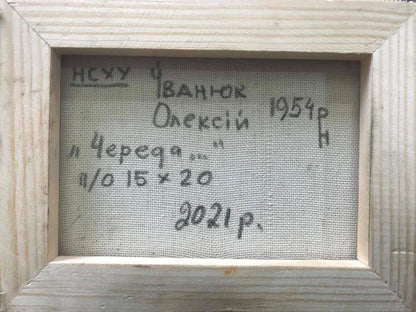 НСХУ Іванюк
Олексій 1954 р
н
„Череда..."
п/о 15 × 20
2021 р.